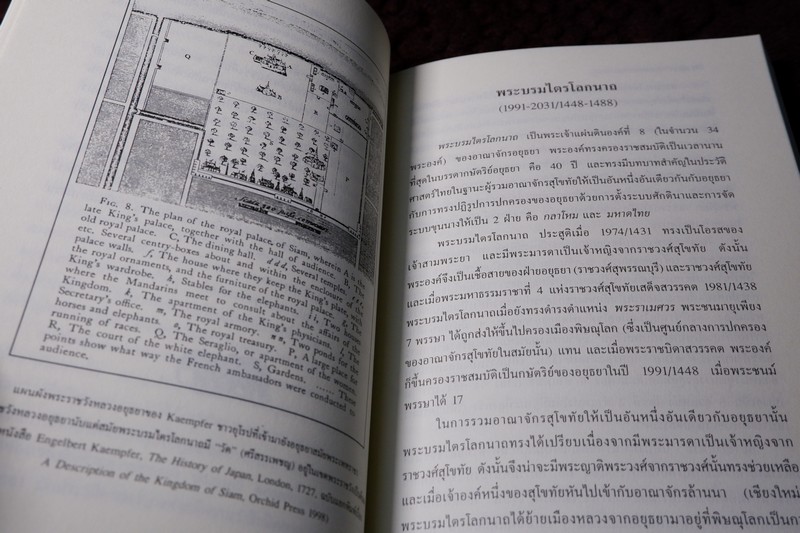 FIG. 8. The plan of the royal palace of Siam, wherein A is the
late King's palace, together with the hall of audience. B, The
old royal palace. C, The dining hall. d d d, Several temples.
etc. Several centry-boxes about and within the enclosure of the
palace walls. f, The house where they keep the King's plate, and
the royal ornaments, and the furniture of the royal palace. g, The
King's wardrobe. h, Stables for the elephants. i i, Two houses
where the Mandarins meet to consult about the affairs of the
Kingdom. k, The apartment of the King's physicians. l, The
Secretary's office. m, The royal armory. Two ponds for the
horses and elephants. o, The royal treasury. P, A large place for
running of races. Q, The Seraglio, or apartment of the women.
R, The court of the white elephant. S, Gardens. ...... These
points show what way the French ambassadors were conducted to
audience.
แผนผังพระราชวังหลวงอยุธยาของ Kaempfer ชาวยุโรปที่เข้ามายังอยุธยาสมัยพระเพทราชา
วังหลวงอยุธยานับแต่สมัยพระบรมไตรโลกนาถมี "วัด" (ศรีสรรเพชญ) อยู่ในเขตพระราชวัง
หนังสือ Engelbert Kaempfer, The History of Japan, London, 1727.
A Description of the Kingdom of Siam, Orchid Press 1998)
พระบรมไตรโลกนาถ
(1991-2031/1448-1488)
พระบรมไตรโลกนาถ เป็นพระเจ้าแผ่นดินองค์ที่ 8 (ในจำนวน 34
พระองค์) ของอาณาจักรอยุธยา พระองค์ทรงครองราชสมบัติเป็นเวลานาน
ที่สุดในบรรดากษัตริย์อยุธยา คือ 40 ปี และทรงมีบทบาทสำคัญในประวัติ
ศาสตร์ไทยในฐานะผู้รวมอาณาจักรสุโขทัยให้เป็นอันหนึ่งอันเดียวกันกับอยุธยา
กับการทรงปฏิรูปการปกครองของอยุธยาด้วยการตั้งระบบศักดินาและการจัด
ระบบขุนนางให้เป็น 2 ฝ่าย คือ กลาโหม และ มหาดไทย
พระบรมไตรโลกนาถ ประสูติเมื่อ 1974/1431 ทรงเป็นโอรสของ
เจ้าสามพระยา และมีพระมารดาเป็นเจ้าหญิงจากราชวงศ์สุโขทัย ดังนั้น
พระองค์จึงเป็นเชื้อสายของฝ่ายอยุธยา (ราชวงศ์สุพรรณบุรี) และราชวงศ์สุโขทัย
และเมื่อพระมหาธรรมราชาที่ 4 แห่งราชวงศ์สุโขทัยเสด็จสวรรคต 1981/1438
พระบรมไตรโลกนาถเมื่อยังทรงดำรงตำแหน่ง พระราเมศวร พระชนมายุเพียง
7 พรรษา ได้ถูกส่งให้ขึ้นไปครองเมืองพิษณุโลก (ซึ่งเป็นศูนย์กลางการปกครอง
ของอาณาจักรสุโขทัยในสมัยนั้น) แทน และเมื่อพระราชบิดาสวรรคต พระองค์
ก็ขึ้นครองราชสมบัติเป็นกษัตริย์ของอยุธยาในปี 1991/1448 เมื่อพระชนม์
พรรษาได้ 17
ในการรวมอาณาจักรสุโขทัยให้เป็นอันหนึ่งอันเดียวกับอยุธยานั้น
พระบรมไตรโลกนาถทรงได้เปรียบเนื่องจากมีพระมารดาเป็นเจ้าหญิงจาก
ราชวงศ์สุโขทัย ดังนั้นจึงน่าจะมีพระญาติพระวงศ์จากราชวงศ์นั้นทรงช่วยเหลือ
และเมื่อเจ้าองค์หนึ่งของสุโขทัยหันไปเข้ากับอาณาจักรล้านนา (เชียงใหม่)
พระบรมไตรโลกนาถได้ย้ายเมืองหลวงจากอยุธยามาอยู่ที่พิษณุโลกเป็นการ